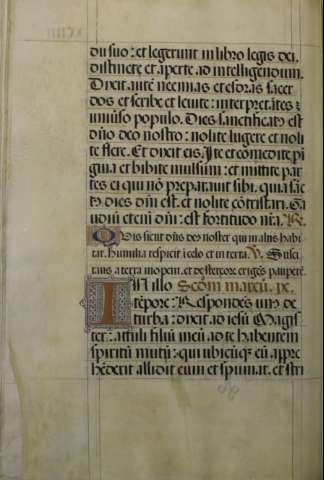 du suo: et legerunt in libro legis dei,
distincte et aperte ad intelligendum.
Dixit autē neemias et esdras sacer
dos et scribe et leuite: interpretātes ⁊
uniūso populo. Dies sanctificatꝰ est
dn̄o deo nostro: nolite lugere et noli
te flere. Et dixit eis, Ite et comedite pi
guia et bibite mulsum: et mittite par
tes ei qui nō prepatauit sibi. quia sāc
tꝰ dies dn̄i est. et nolite cōtristari. Ga
udiū eteni dn̄i: est fortitudo nr̄a. R.
Quis sicut dn̄s des noster qui in altis habi
tat. humilia respicit i celo et in terra. V. Susci
tans a terra inopem. et de stercore eriges pauperē.
In illo Sc̄dm marcū. ix.
tēpore: Respondēs unꝰ de
turba: dixit ad iesū Magis
ter: attuli filiū meū ad te habentem
spiritū mutū: qui ubicūqꝫ eū appre
hēderit allidit eum et spumat. et stri